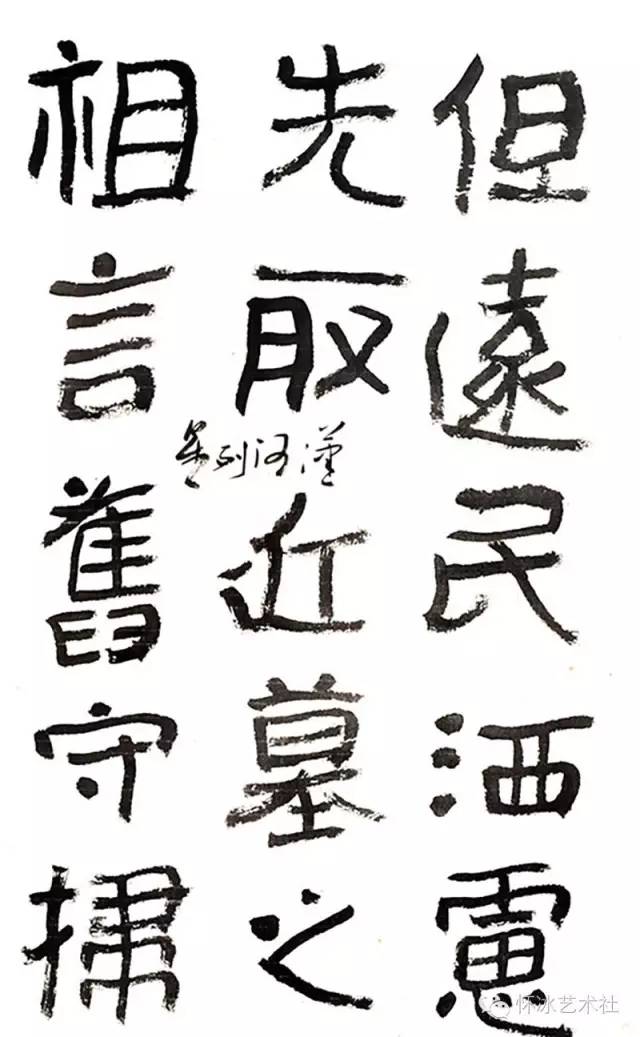 但遠民洒慮
先取近墓之
祖言舊守掃
星列河漢
怀冰艺术社